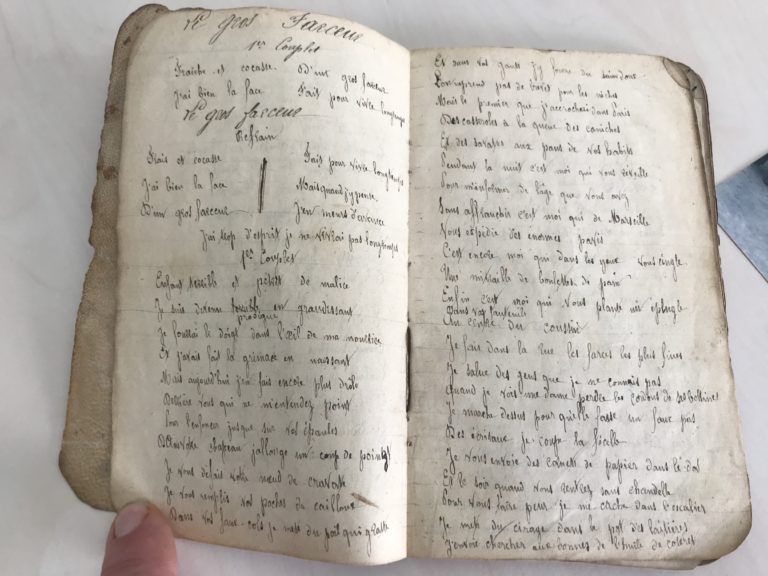 Le gros Farceur
1er Couplet
Fraiche et cocasse D'un gros farceur
J'ai bien la face Fait pour vivre longtemps
Le gros farceur
Refrain
Frais et cocasse Fait pour vivre longtemps
J'ai bien la face Mais quand j'y pense
D'un gros farceur J'en meurs d'avance
J'ai trop d'esprit je ne vivrai pas longtemps
1er Couplet
Enfant terrible et pétri de malice
Je suis devenu terrible en grandissant
prodigue
Je fourrai le doigt dans l'œil de ma nourrice
Et j'avais fait la grimace en naissant
Mais aujourd'hui j'ai fais encore plus drôle
Derrière vous qui ne m'entendez point
Pour l'enfoncer jusque sur vos épaules
Dans votre chapeau j'allonge un coup de poing
Je vous défais votre nœud de cravate
Je vous remplis vos poches de cailloux
Dans vos faux cols je mets du poil qui gratte
Et dans vos gants j'y fourre du saindoux
pas de pour les riches
Mais le premier que j'accrochai dans Paris
Des casseroles à la queue des caniches
Et des savates aux pans de vos habits
Pendant la nuit c'est moi qui vous réveille
Pour m'informer de l'âge que vous avez
Sans affranchir c'est moi qui de Marseille
Vous expédie des énormes pavés
C'est encore moi qui dans les yeux vous cingle
Une mitraille de boulettes de pain
Enfin c'est moi qui vous plante un épingle
Dans vos fauteuils
Au centre du coussin
Je fais dans la rue les farces les plus fines
Je salue des gens que je ne connais pas
Quand je vois une dame perdre les cordons de ses bottines
Je marche dessus pour qu'elle fasse un faux pas
Des écriteaux je coupe la ficelle
Je vous envoie des cornets de papier dans le dos
Et le soir quand vous rentrez sans chandelle
Pour vous faire peur je me cache dans l'escalier
Je mets du cirage dans le pot des laitières
J'envoie chercher aux bonnes de l'huile de cotrets